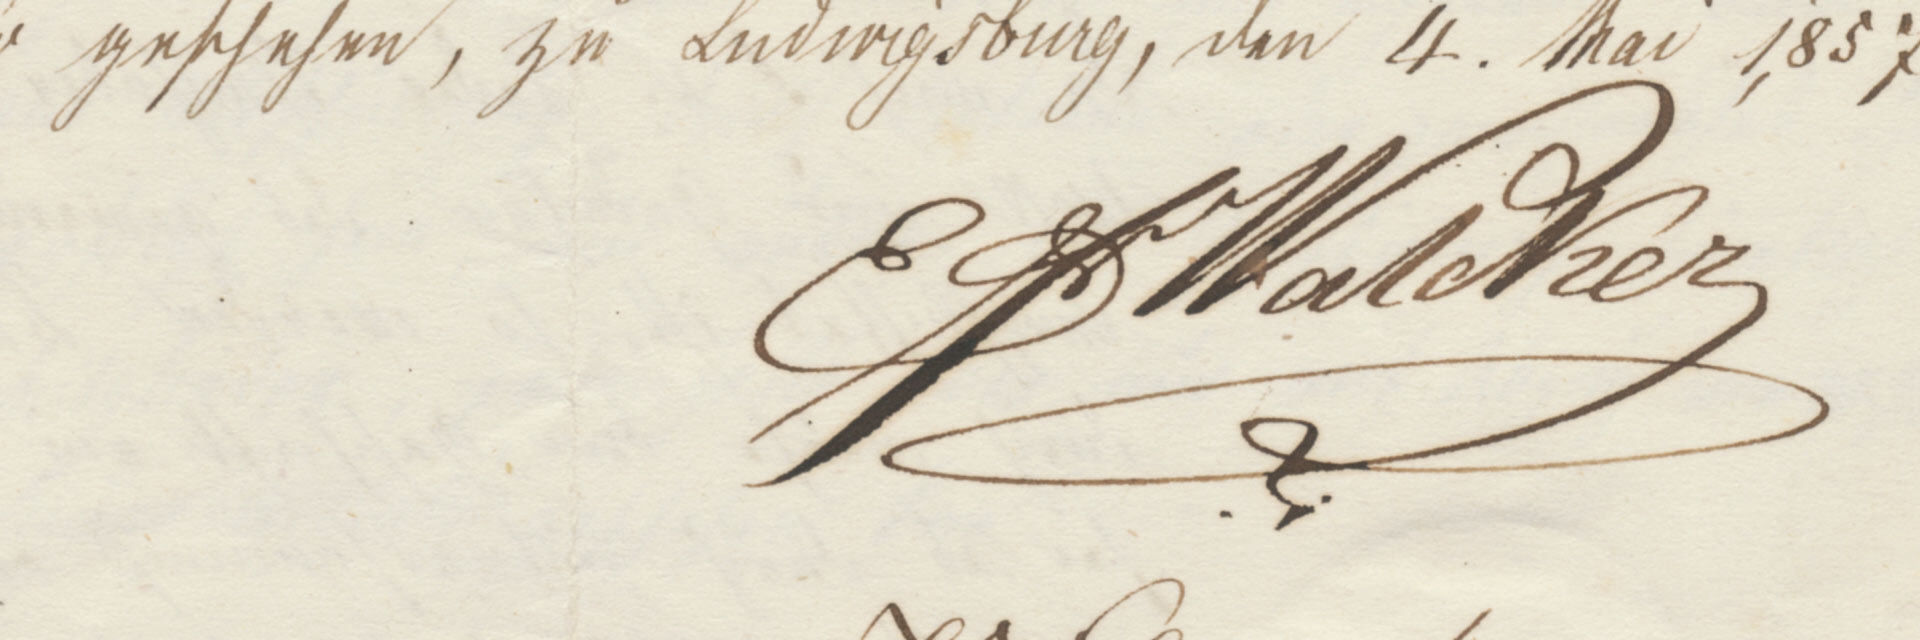 geschehen, zu Ludwigsburg, den 4. Mai 1857
E F Walcker